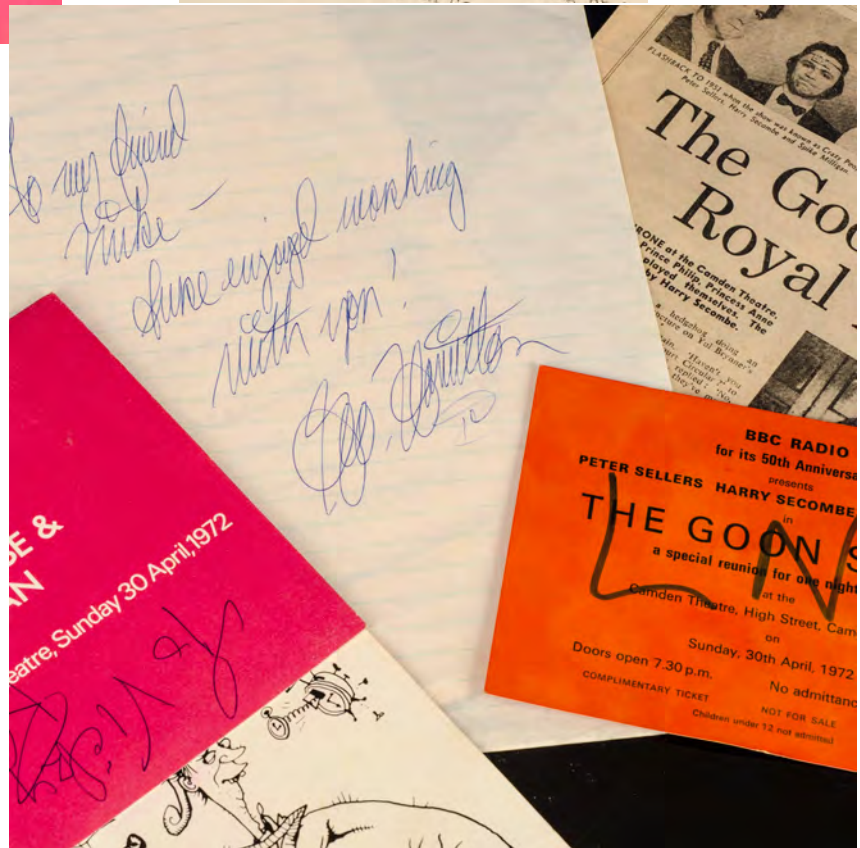 To my friend
Mike —
Sure enjoyed working
with you!
Geo. Hamilton
IV
FLASHBACK TO 1951 when the show was known as Crazy Peo
Peter Sellers, Harry Secombe and Spike Milligan.
The Goo
Royal
RONE at the Camden Theatre.
Prince Philip, Princess Anne
played themselves. The
by Harry Secombe.
a hedgehog doing an
cture on Yul Brynner's
'Haven't you
Court Circular?' to
replied: 'No
they've m
BBC RADIO
for its 50th Anniversa
presents
PETER SELLERS HARRY SECOMBE
in
THE GOON S
a special reunion for one night
at the
Camden Theatre, High Street, Cam
on
Sunday, 30th April, 1972
Doors open 7.30 p.m.
No admittanc
COMPLIMENTARY TICKET
NOT FOR SALE
Children under 12 not admitted
L N
SE &
AN
eatre, Sunday 30 April, 1972